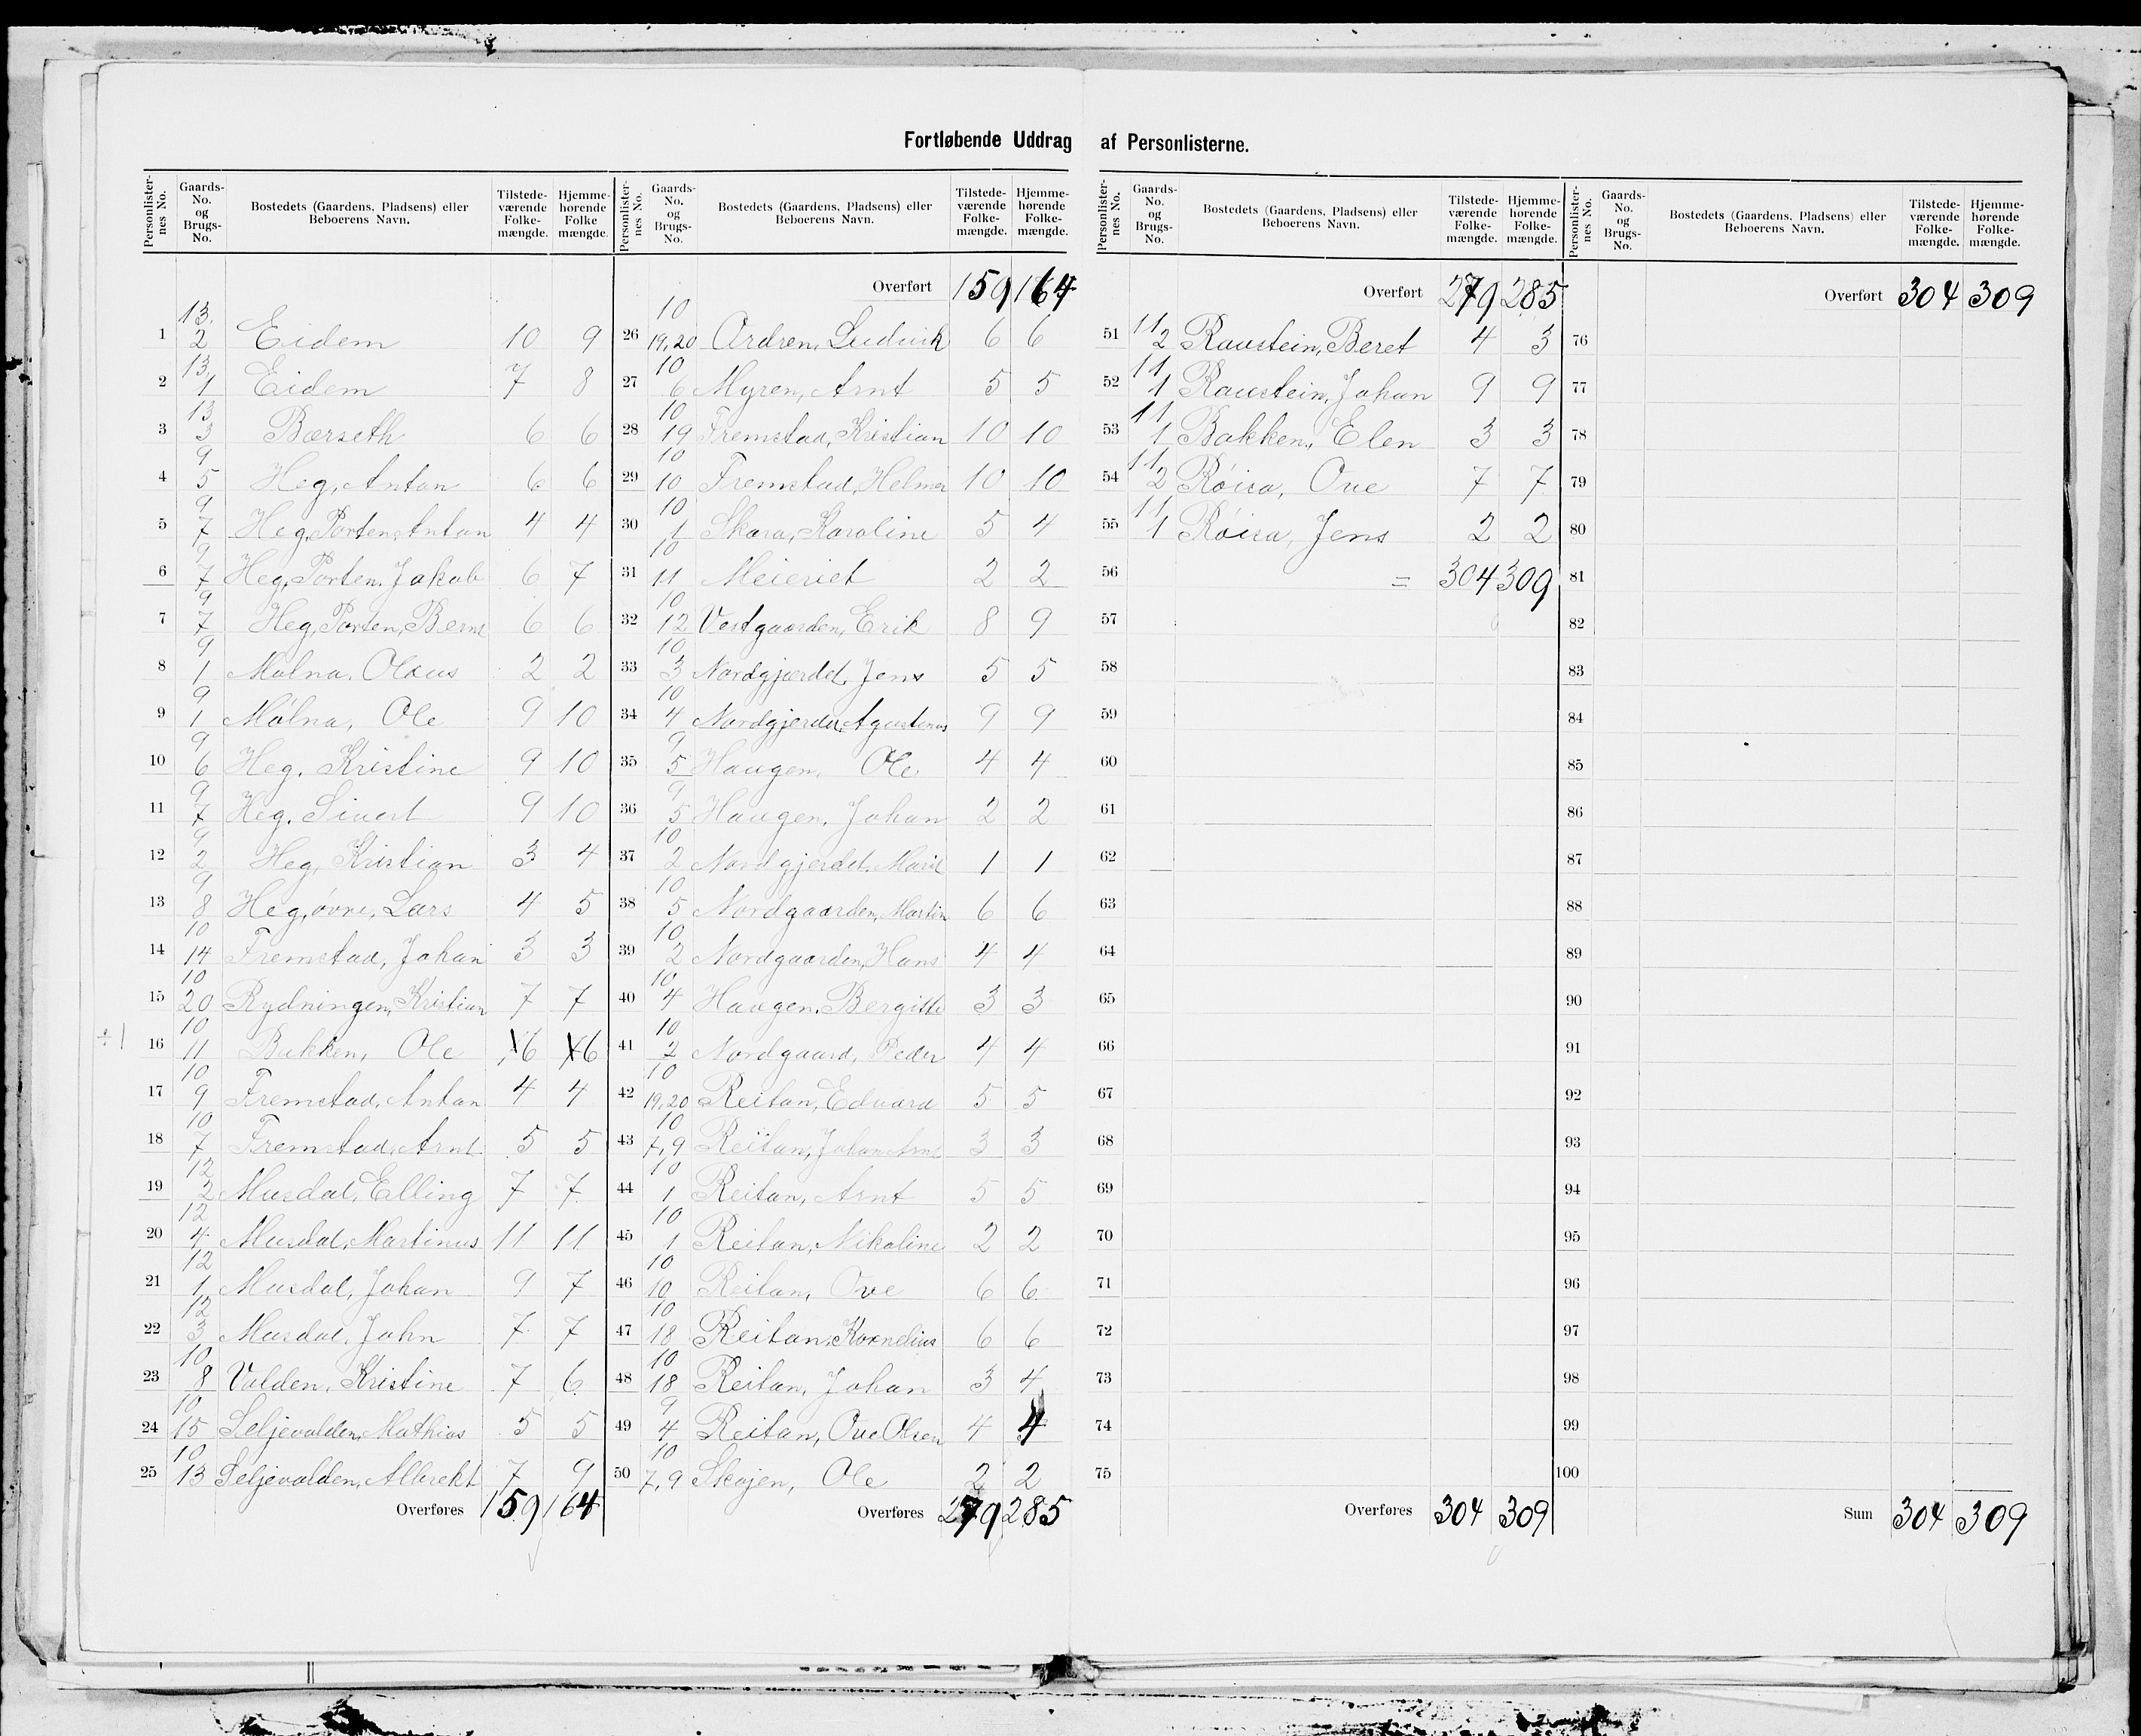 Fortløbende Uddrag af Personlisterne.
Personlisternes No. Gaards-No. og Brugs-No. Bostedets (Gaardens, Pladsens) eller Beboerens Navn. Tilstedeværende Folkemængde. Hjemmehørende Folkemængde.
1 13. 2 Eidem 10 9
2 13. 1 Eidem 7 8
3 13 3 Børseth 6 6
4 9 5 Heg, Anton 6 6
5 9 7 Heg, Porten, Anton 4 4
6 9 7 Heg, Porten, Jakob 6 7
7 9 7 Heg, Porten, Bernt 6 6
8 9 1 Mølna, Olaus 2 2
9 9 1 Mølna, Ole 9 10
10 9 6 Heg, Kristine 9 10
11 9 7 Heg, Sivert 9 10
12 9 2 Heg, Kristian 3 4
13 9 8 Heg, øvre, Lars 4 5
14 10 14 Fremstad, Johan 3 3
15 10 20 Rydningen, Kristian 7 7
÷ 1 16 10 11 Bakken, Ole 6 6
17 10 9 Fremstad, Anton 4 4
18 10 7 Fremstad, Arnt 5 5
19 12 2 Musdal, Elling 7 7
20 12 4 Musdal, Martinus 11 11
21 12 1 Musdal, Johan 9 7
22 12 3 Musdal, John 7 7
23 10 8 Volden, Kristine 7 6
24 10 15 Seljevolden, Mathias 5 5
25 10 13 Seljevolden, Albrekt 7 9
Overføres 159 164
Personlisternes No. Gaards-No. og Brugs-No. Bostedets (Gaardens, Pladsens) eller Beboerens Navn. Tilstedeværende Folkemængde. Hjemmehørende Folkemængde.
Overført 159 164
26 10 19,20 Ludvik 6 6
27 10 6 Myren, Arnt 5 5
28 10 19 Fremstad, Kristian 10 10
29 10 10 Fremstad, Helmer 10 10
30 10 1 Skara, Karoline 5 4
31 10 11 Meieriet 2 2
32 10 12 Vestgaarden, Erik 8 9
33 10 3 Nordgjerdet, Jens 5 5
34 10 4 Nordgjerdet, Agustinus 9 9
35 9 5 Haugen, Ole 4 4
36 9 5 Haugen, Johan 2 2
37 10 2 Nordgjerdet, Marit 1 1
38 10 5 Nordgaarden, Martin 6 6
39 10 2 Nordgaarden, Hans 4 4
40 10 4 Haugen, Bergitte 3 3
41 10 2 Nordgaard, Peder 4 4
42 10 19,20 Reitan, Edvard 5 5
43 10 7,9 Reitan, Johan Arnt 3 3
44 10 1 Reitan, Arnt 5 5
45 10 1 Reitan, Nikoline 2 2
46 10 10 Reitan, Ove 6 6
47 10 18 Reitan, Kornelius 6 6
48 10 18 Reitan, Johan 3 4
49 9 4 Reitan, Ove Olsen 4 4
50 10 7,9 Skajen, Ole 2 2
Overføres 279 285
Personlisternes No. Gaards-No. og Brugs-No. Bostedets (Gaardens, Pladsens) eller Beboerens Navn. Tilstedeværende Folkemængde. Hjemmehørende Folkemængde.
Overført 279 285
51 11 2 Raustein, Beret 4 3
52 11 1 Raustein, Johan 9 9
53 11 1 Bakken, Elen 3 3
54 11 2 Røisa, Ove 7 7
55 11 1 Røisa, Jens 2 2
56 = 304 309
57
58
59
60
61
62
63
64
65
66
67
68
69
70
71
72
73
74
75
Overføres 304 309
Personlisternes No. Gaards-No. og Brugs-No. Bostedets (Gaardens, Pladsens) eller Beboerens Navn. Tilstedeværende Folkemængde. Hjemmehørende Folkemængde.
Overført 304 309
76
77
78
79
80
81
82
83
84
85
86
87
88
89
90
91
92
93
94
95
96
97
98
99
100
Sum 304 309